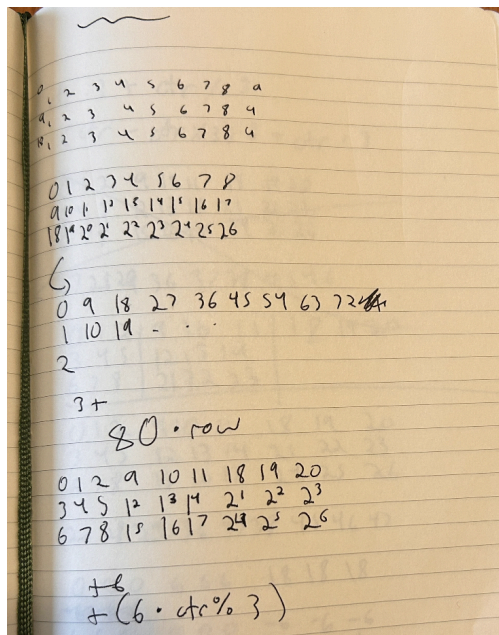 0 1 2 3 4 5 6 7 8 9
9 1 2 3 4 5 6 7 8 9
18 1 2 3 4 5 6 7 8 9
0 1 2 3 4 5 6 7 8
9 10 11 12 13 14 15 16 17
18 19 20 21 22 23 24 25 26
0 9 18 27 36 45 54 63 72
1 10 19 - . .
2
3 +
80 · row
0 1 2 9 10 11 18 19 20
3 4 5 12 13 14 21 22 23
6 7 8 15 16 17 24 25 26
+6
+ (6 · ctr % 3)